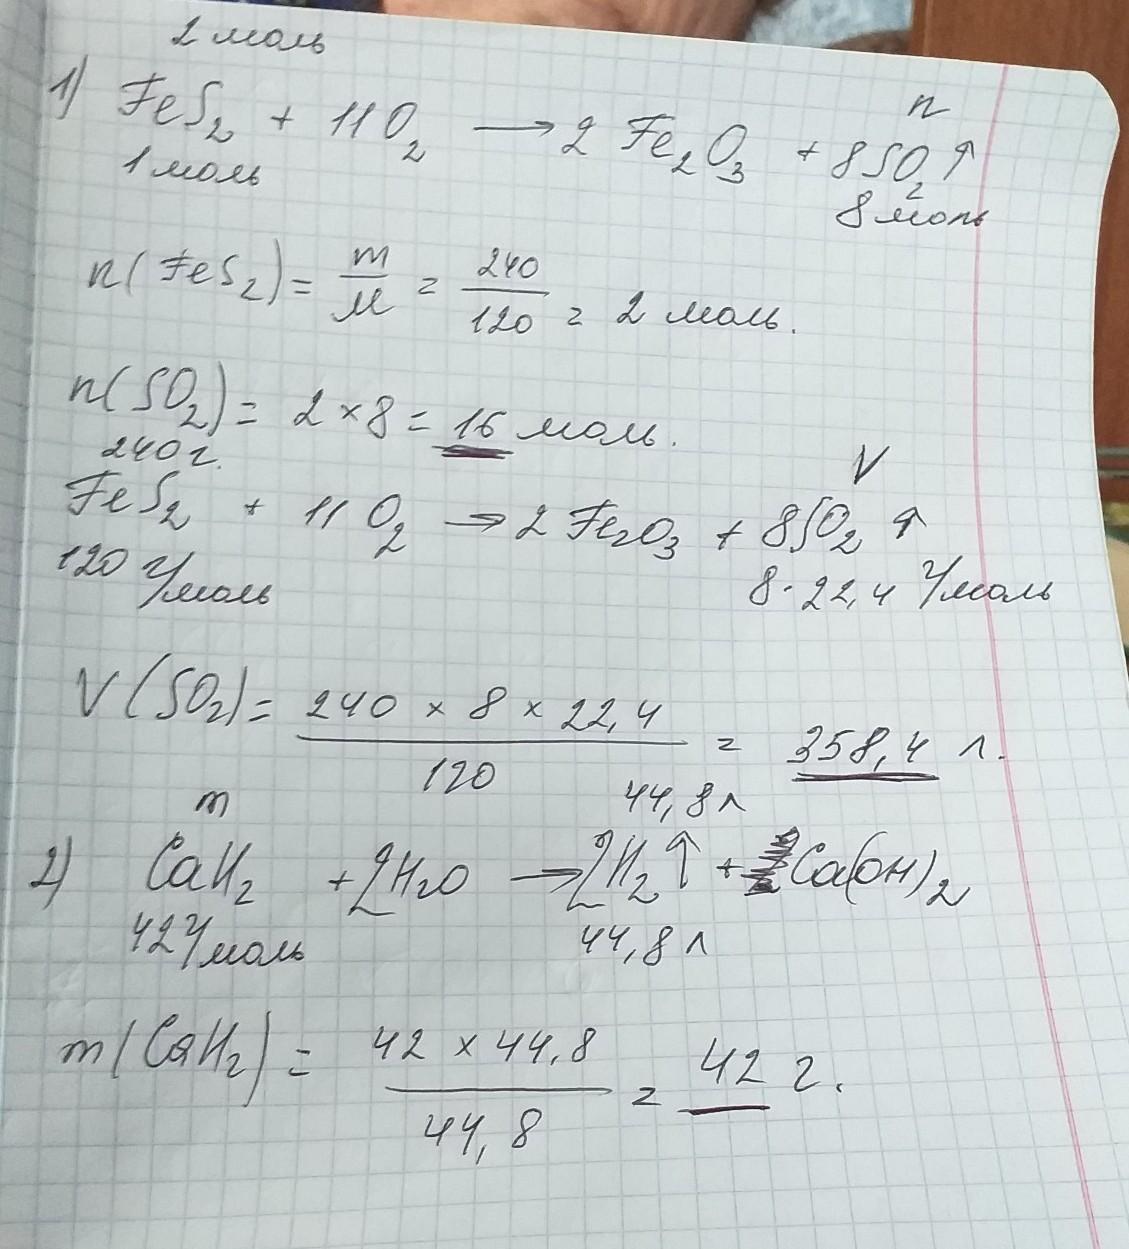 2 моль
n
1) FeS₂ + 11O₂ → 2 Fe₂O₃ + 8SO₂↑
1 моль 8 моль
n(FeS₂) = m/M = 240/120 = 2 моль.
n(SO₂) = 2 × 8 = 16 моль.
240 г. V
FeS₂ + 11 O₂ → 2 Fe₂O₃ + 8SO₂ ↑
120 г/моль 8·22,4 г/моль
V(SO₂) = 240 × 8 × 22,4 / 120 = 358,4 л.
m 44,8 л
2) CaH₂ + 2H₂O → 2H₂↑ + Ca(OH)₂
42 г/моль 44,8 л
m(CaH₂) = 42 × 44,8 / 44,8 = 42 г.